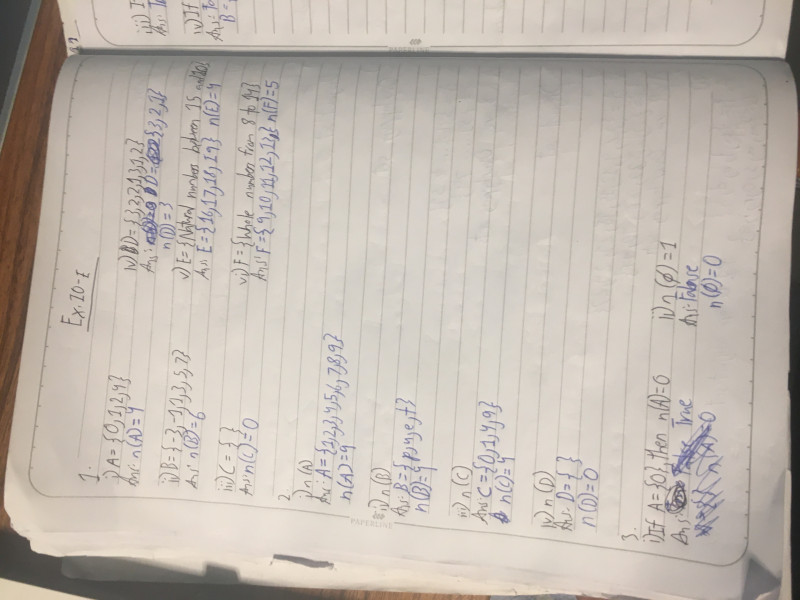 Ex. 10-E
1.
i) A = {0,1,2,4}
Ans: n(A) = 4
ii) B = {-3,-1,1,3,5,7}
Ans: n(B) = 6
iii) C = { }
Ans: n(C) = 0
iv) D = {3,2,2,1,3,1,2}
Ans: D = {3,2,1}
n(D) = 3
v) E = {Natural numbers between 15 and 20}
Ans: E = {16,17,18,19} n(E) = 4
vi) F = {Whole numbers from 8 to 14}
Ans: F = {9,10,11,12,13} n(F) = 5
2.
i) n(A)
Ans: A = {1,2,3,4,5,6,7,8,9}
n(A) = 9
ii) n(B)
Ans: B = {p,y,e,t}
n(B) = 4
iii) n(C)
Ans: C = {0,1,4,9}
n(C) = 4
iv) n(D)
Ans: D = { }
n(D) = 0
3.
i) If A = {0}, then n(A) = 0
Ans: True
n(A) = 0
ii) n(ø) = 1
Ans: False
n(ø) = 0
iii) I
Ans:
iv) If
Ans:
B =
PAPERLINE
PAPERLINE